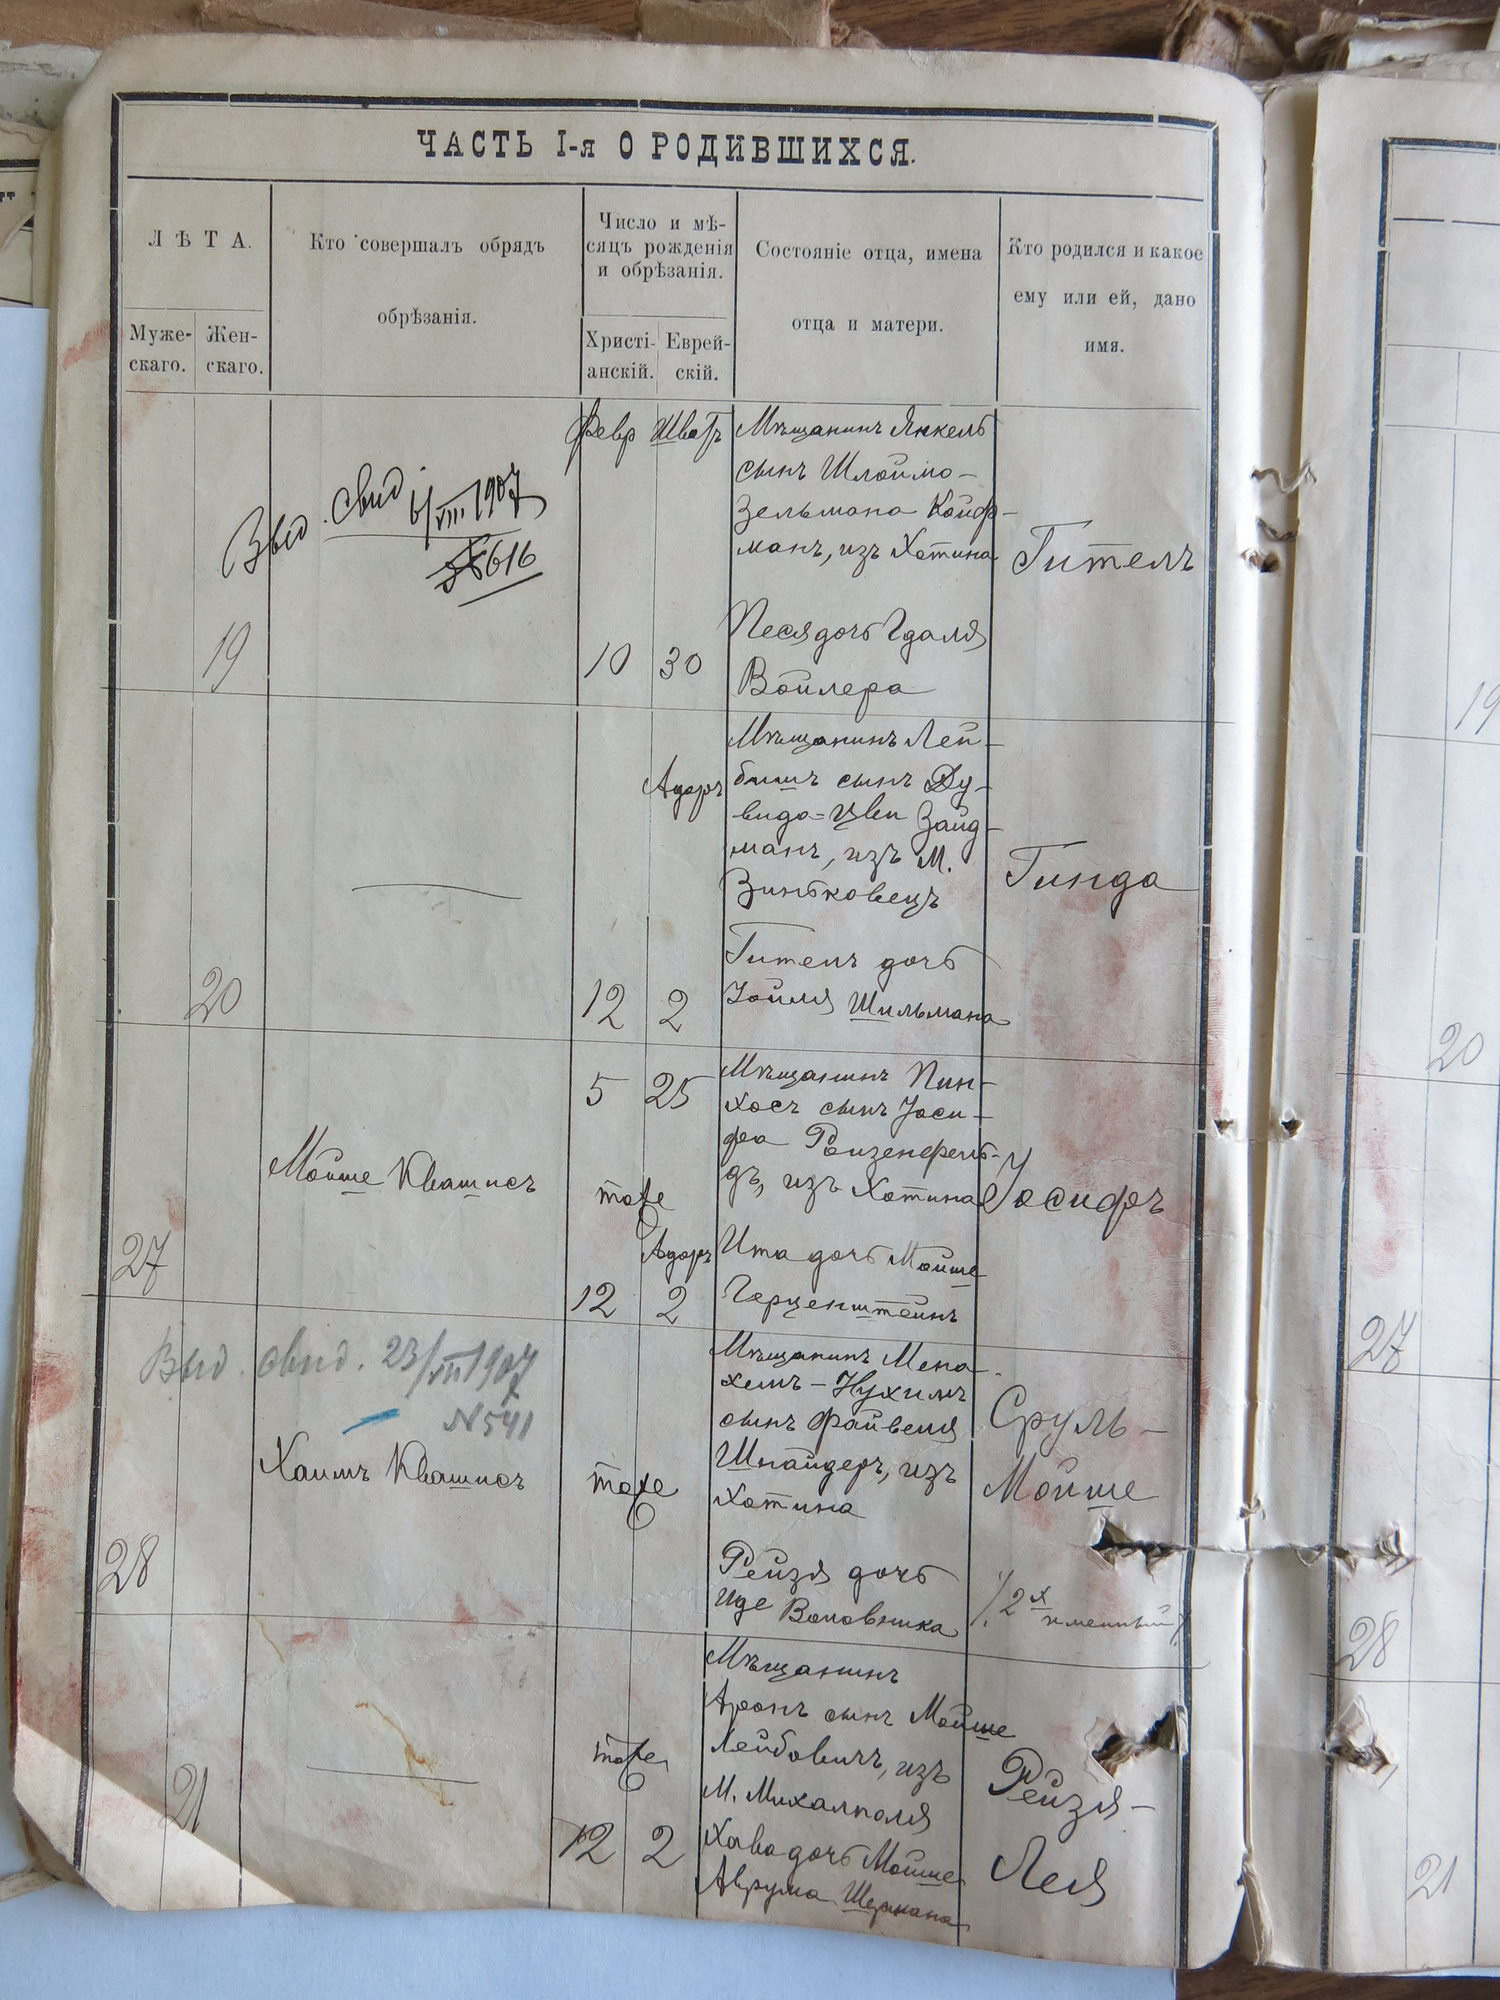 ЧАСТЬ I-я О РОДИВШИХСЯ.
ЛѢТА.
Муже-
скаго.
Жен-
скаго.
Кто совершалъ обрядъ
обрѣзанія.
Число и мѣ-
сяцъ рожденія
и обрѣзанія.
Христі-
анскій.
Еврей-
скій.
Состояніе отца, имена
отца и матери.
Кто родился и какое
ему или ей, дано
имя.
19
Выд. свид. 6/VIII 1907
№ 616
Февр Шватъ
10 30
Мѣщанинъ Янкель
сынъ Шлоймо-
Зельмана Койф-
манъ, изъ Хотина
Песя дочь Гдаля
Войлера
Гительъ
20
Адаръ
12 2
Мѣщанинъ Лей-
бишъ сынъ Ду-
вида-Цви Зайд-
манъ, изъ М.
Зиньковецъ
Гителъ дочь
Іойля Шильмана
Гинда
27
Мойше Квашисъ
5 25
тоже
Адаръ
12 2
Мѣщанинъ Пин-
хосъ сынъ Іоси-
фа Ройзенфель-
дъ, изъ Хотина
Ита дочь Мойше
Герценштейнъ
Іосифъ
Выд. свид. 23/VII 1907
№ 541
28
Хаимъ Квашисъ
тоже
Мѣщанинъ Мена-
хемъ-Нухимъ
сынъ Файвеля
Шнайдеръ, изъ
Хотина
Рейзя дочь
Иде Воловника
Сруль-
Мойше
/2х
именный/
21
тоже
12 2
Мѣщанинъ
Аронъ сынъ Мойше
Лейбовичъ, изъ
М. Михалполя
Хава дочь Мойше
Аврума Шермана
Рейзя-
Лея
19
20
27
28
21